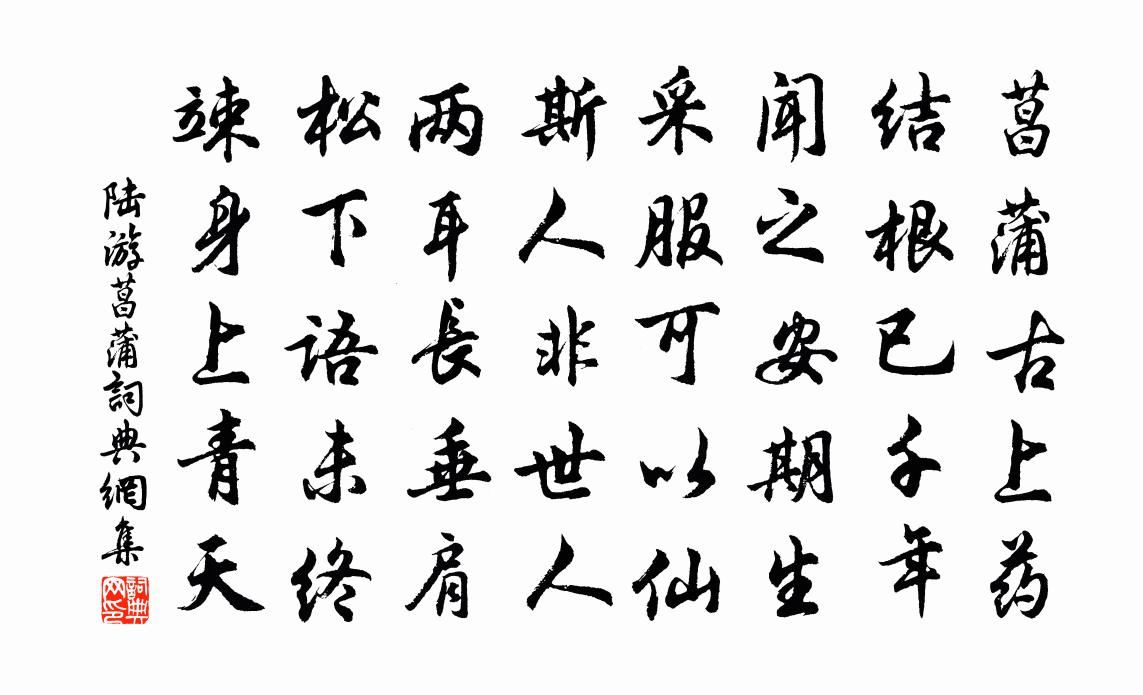 菖蒲古上药
结根已千年
闻之安期生
采服可以仙
斯人非世人
两耳長垂肩
松下语未终
竦身上青天
陆游菖蒲詞典網集
詞典网印